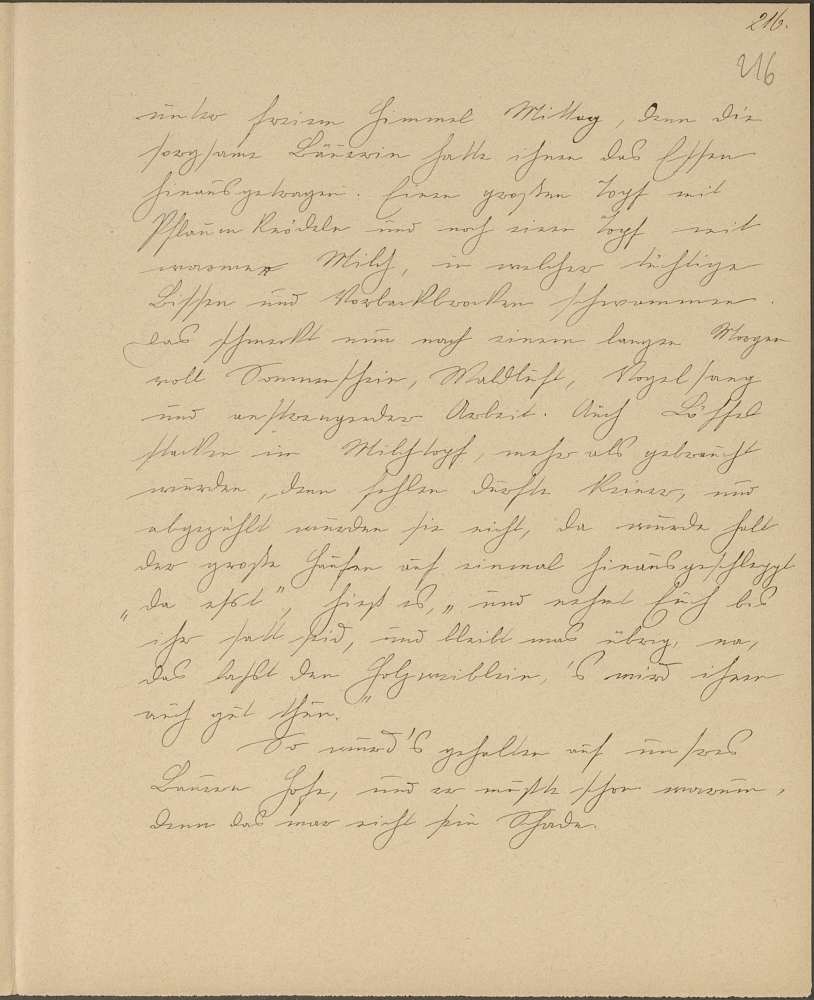 216.
216
unter freiem Himmel Mittag, denn die
sorgsame Bäuerin hatte ihnen das Essen
hinausgetragen. Einen großen Topf mit
Pflaumknödeln und noch einen Topf mit
warmer Milch, in welcher tüchtige
Bissen und Vorbackbrocken schwammen.
Das schmeckt nun nach einem langen Morgen
voll Sonnenschein, Waldluft, Vogelsang
und anstrengender Arbeit. Auch Löffel
stacken im Milchtopf, mehr als gebraucht
wurden, denn fehlen durfte keiner, und
abgezählt wurden sie nicht, da wurde halt
der große Haufen auf einmal hinausgeschleppt
„da esst", hieß es, „und nehmt Euch bis
ihr satt seid, und bleibt was übrig, na,
das lasst den Holzweiblein, 's wird ihnen
auch gut thun."
So wurd's gehalten auf unsres
Bauern Hofe, und er wußte schon warum,
denn das war nicht sein Schade.